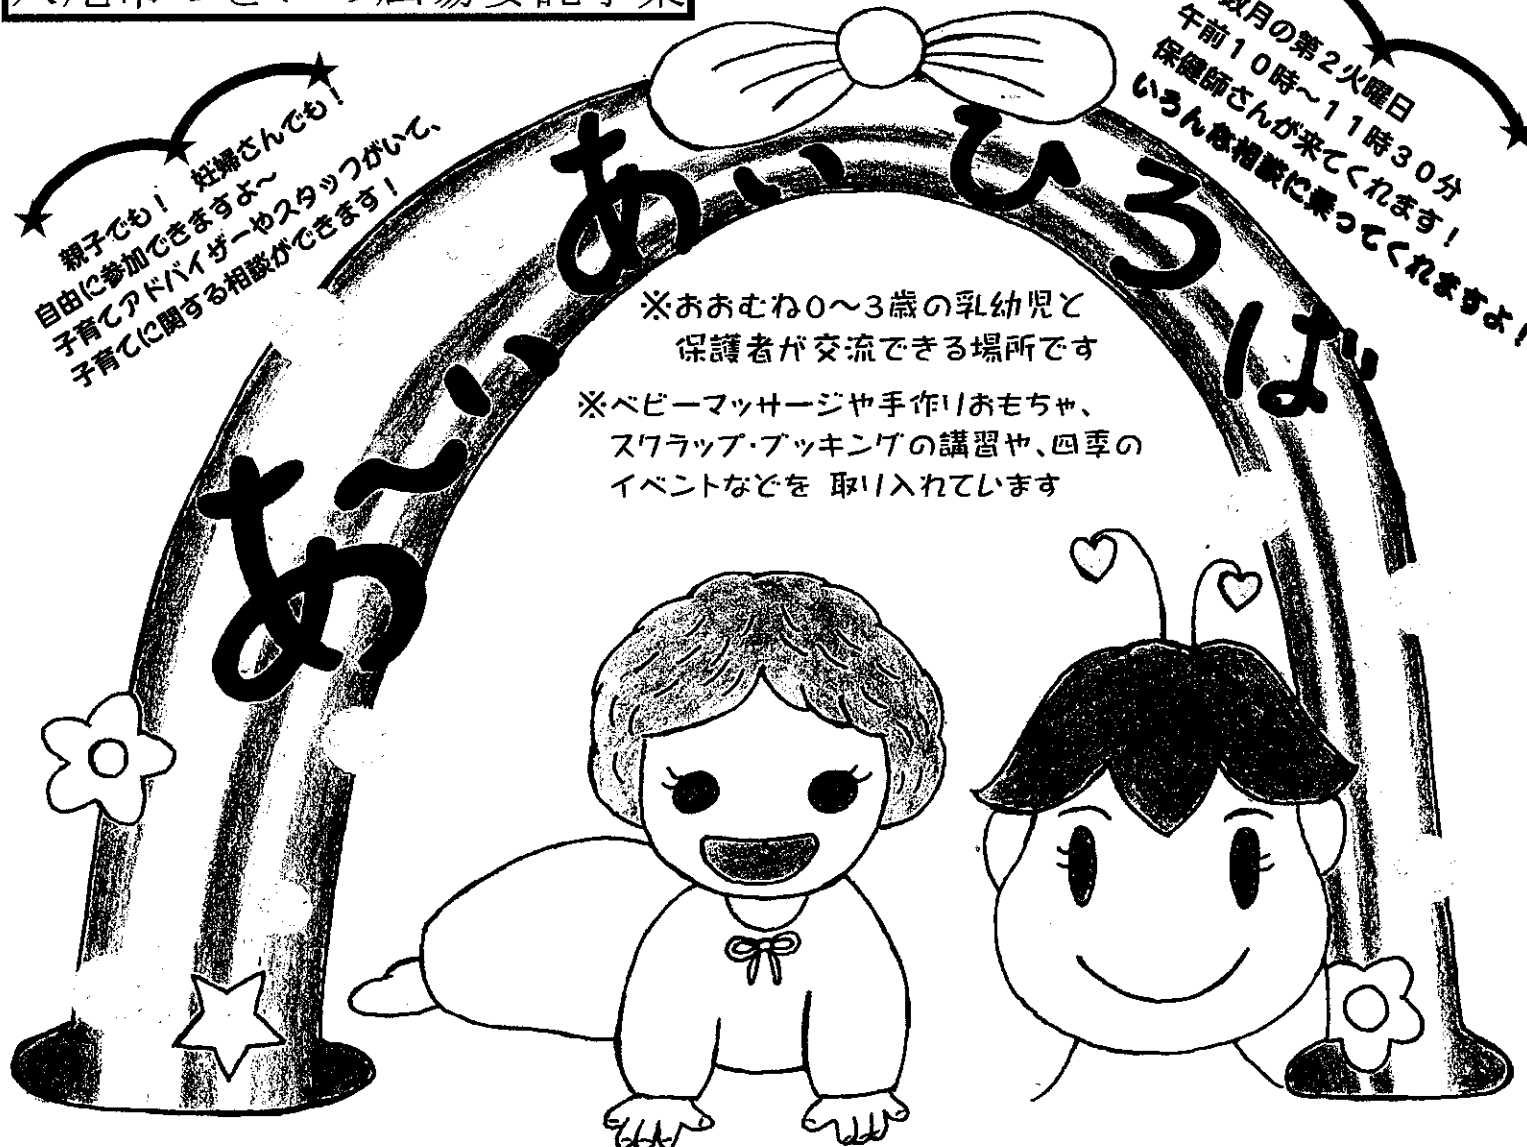 八尾市つどいの広場委託事業
親子でも！　妊婦さんでも！
自由に参加できますよ〜
子育てアドバイザーやスタッフがいて、
子育てに関する相談ができます！
数月の第２火曜日
午前１０時〜１１時３０分
保健師さんが来てくれます！
いろんな相談に乗ってくれますよ！
あ〜いあいひろば
※おおむね0〜3歳の乳幼児と
保護者が交流できる場所です
※ベビーマッサージや手作りおもちゃ、
スクラップ・ブッキングの講習や、四季の
イベントなどを 取り入れています